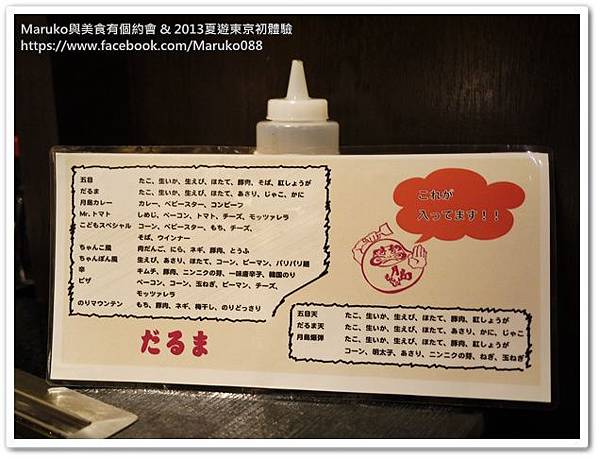 Maruko與美食有個約會 & 2013夏遊東京初體驗
https://www.facebook.com/Maruko088
五目 たこ、生いか、生えび、ほたて、豚肉、そば、紅しょうが
だるま たこ、生いか、生えび、ほたて、あさり、じゃこ、かに
月島カレー カレー、ベビースター、コンビーフ
Mr.トマト しめじ、ベーコン、トマト、チーズ、モッツァレラ
こどもスペシャル コーン、ベビースター、もち、チーズ、
そば、ウインナー
ちゃんこ風 肉だんご、にら、ネギ、豚肉、とうふ
ちゃんぽん風 生えび、あさり、ほたて、コーン、ピーマン、パリパリ麺
辛 キムチ、豚肉、ニンニクの芽、一味唐辛子、韓国のり
ピザ ベーコン、コーン、玉ねぎ、ピーマン、チーズ、
モッツァレラ
のりマウンテン もち、豚肉、ネギ、梅干し、のりどっさり
だるま
これが
入ってます！！
月島
五目天 たこ、生いか、生えび、ほたて、豚肉、紅しょうが
だるま天 たこ、生いか、生えび、ほたて、あさり、かに、じゃこ
月島爆弾 たこ、生いか、生えび、ほたて、豚肉、紅しょうが
コーン、明太子、あさり、ニンニクの芽、ねぎ、玉ねぎ